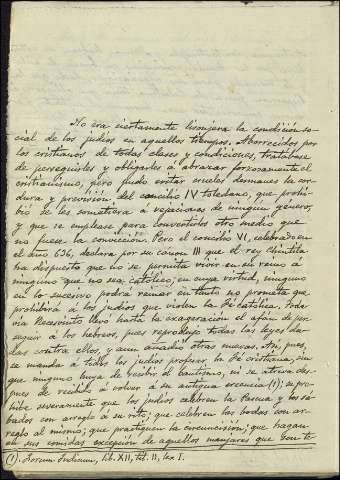 No era ciertamente lisonjera la condición so-
cial de los judíos en aquellos tiempos. Aborrecidos por
los cristianos de todas clases y condiciones, tratábase
de perseguirles y obligarles á abrazar forzosamente el
cristianismo, pero pudo evitar esos desmanes la cor-
dura y previsión del concilio IV toledano, que prohi-
bió se les sometiera á vejaciones de ningún género,
y que se emplease para convertirlos otro medio que
no fuese la convicción. Pero el concilio VI, celebrado en
el año 636, declara por su canon III que el rey Chintila
ha dispuesto que no se permita vivir en su reino á
ninguno que no sea católico; en cuya virtud, ninguno
en lo sucesivo podrá reinar en tanto no prometa que
prohibirá á los judíos que violen la fé católica. Toda-
via Recesvinto llevó hasta la exageración el afán de per-
seguir á los hebreos, pues reprodujo todas las leyes da-
das contra ellos, y aun añadió otras nuevas. Así, pues,
se manda á todos los judíos profesar la fé cristiana, sin
que ninguno huya de recibir el bautismo, ni se atreva des-
pues de recibido á volver á su antigua creencia (1); se pro-
hibe severamente que los judíos celebren la Pascua y los sá-
bados con arreglo á su rito; que celebren las bodas con ar-
reglo al mismo; que practiquen la circuncisión; que hagan
en sus comidas excepción de aquellos manjares que son te-
(1). Forum Judicum, lib. XII, tít. II, lex I.